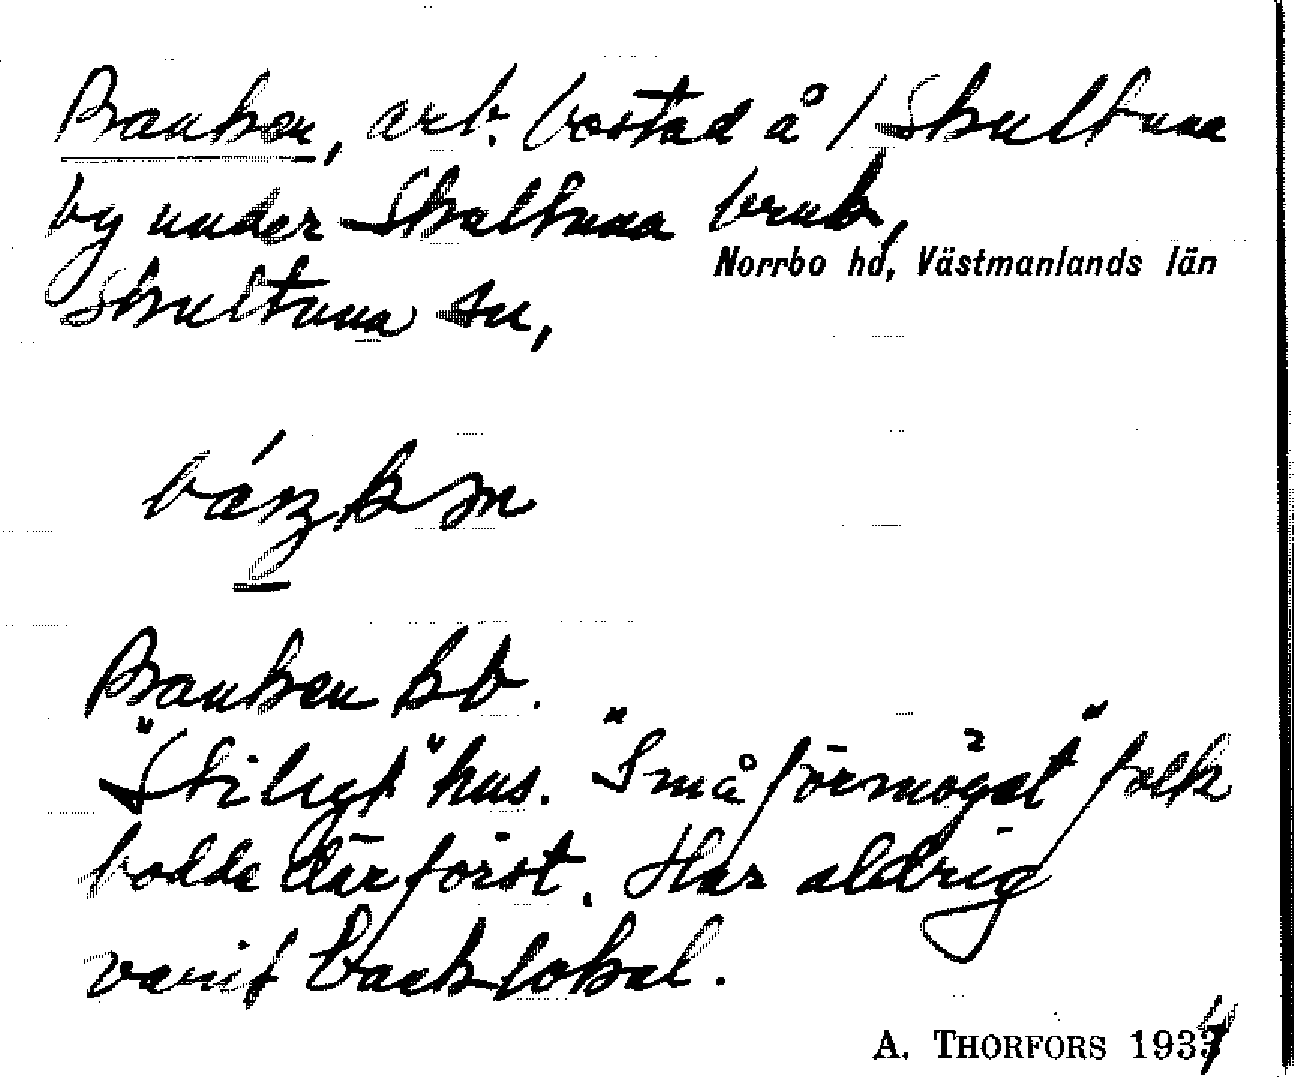 Banken, arb. bostad å / Skultuna
by under Skultuna bruk,
Norrbo hd, Västmanlands län
Skultuna sn,
Banken kb.
"Stiligt" hus. "Småförmöget" folk
bodde där först. Har aldrig
varit banklokal.
A. THORFORS 1934